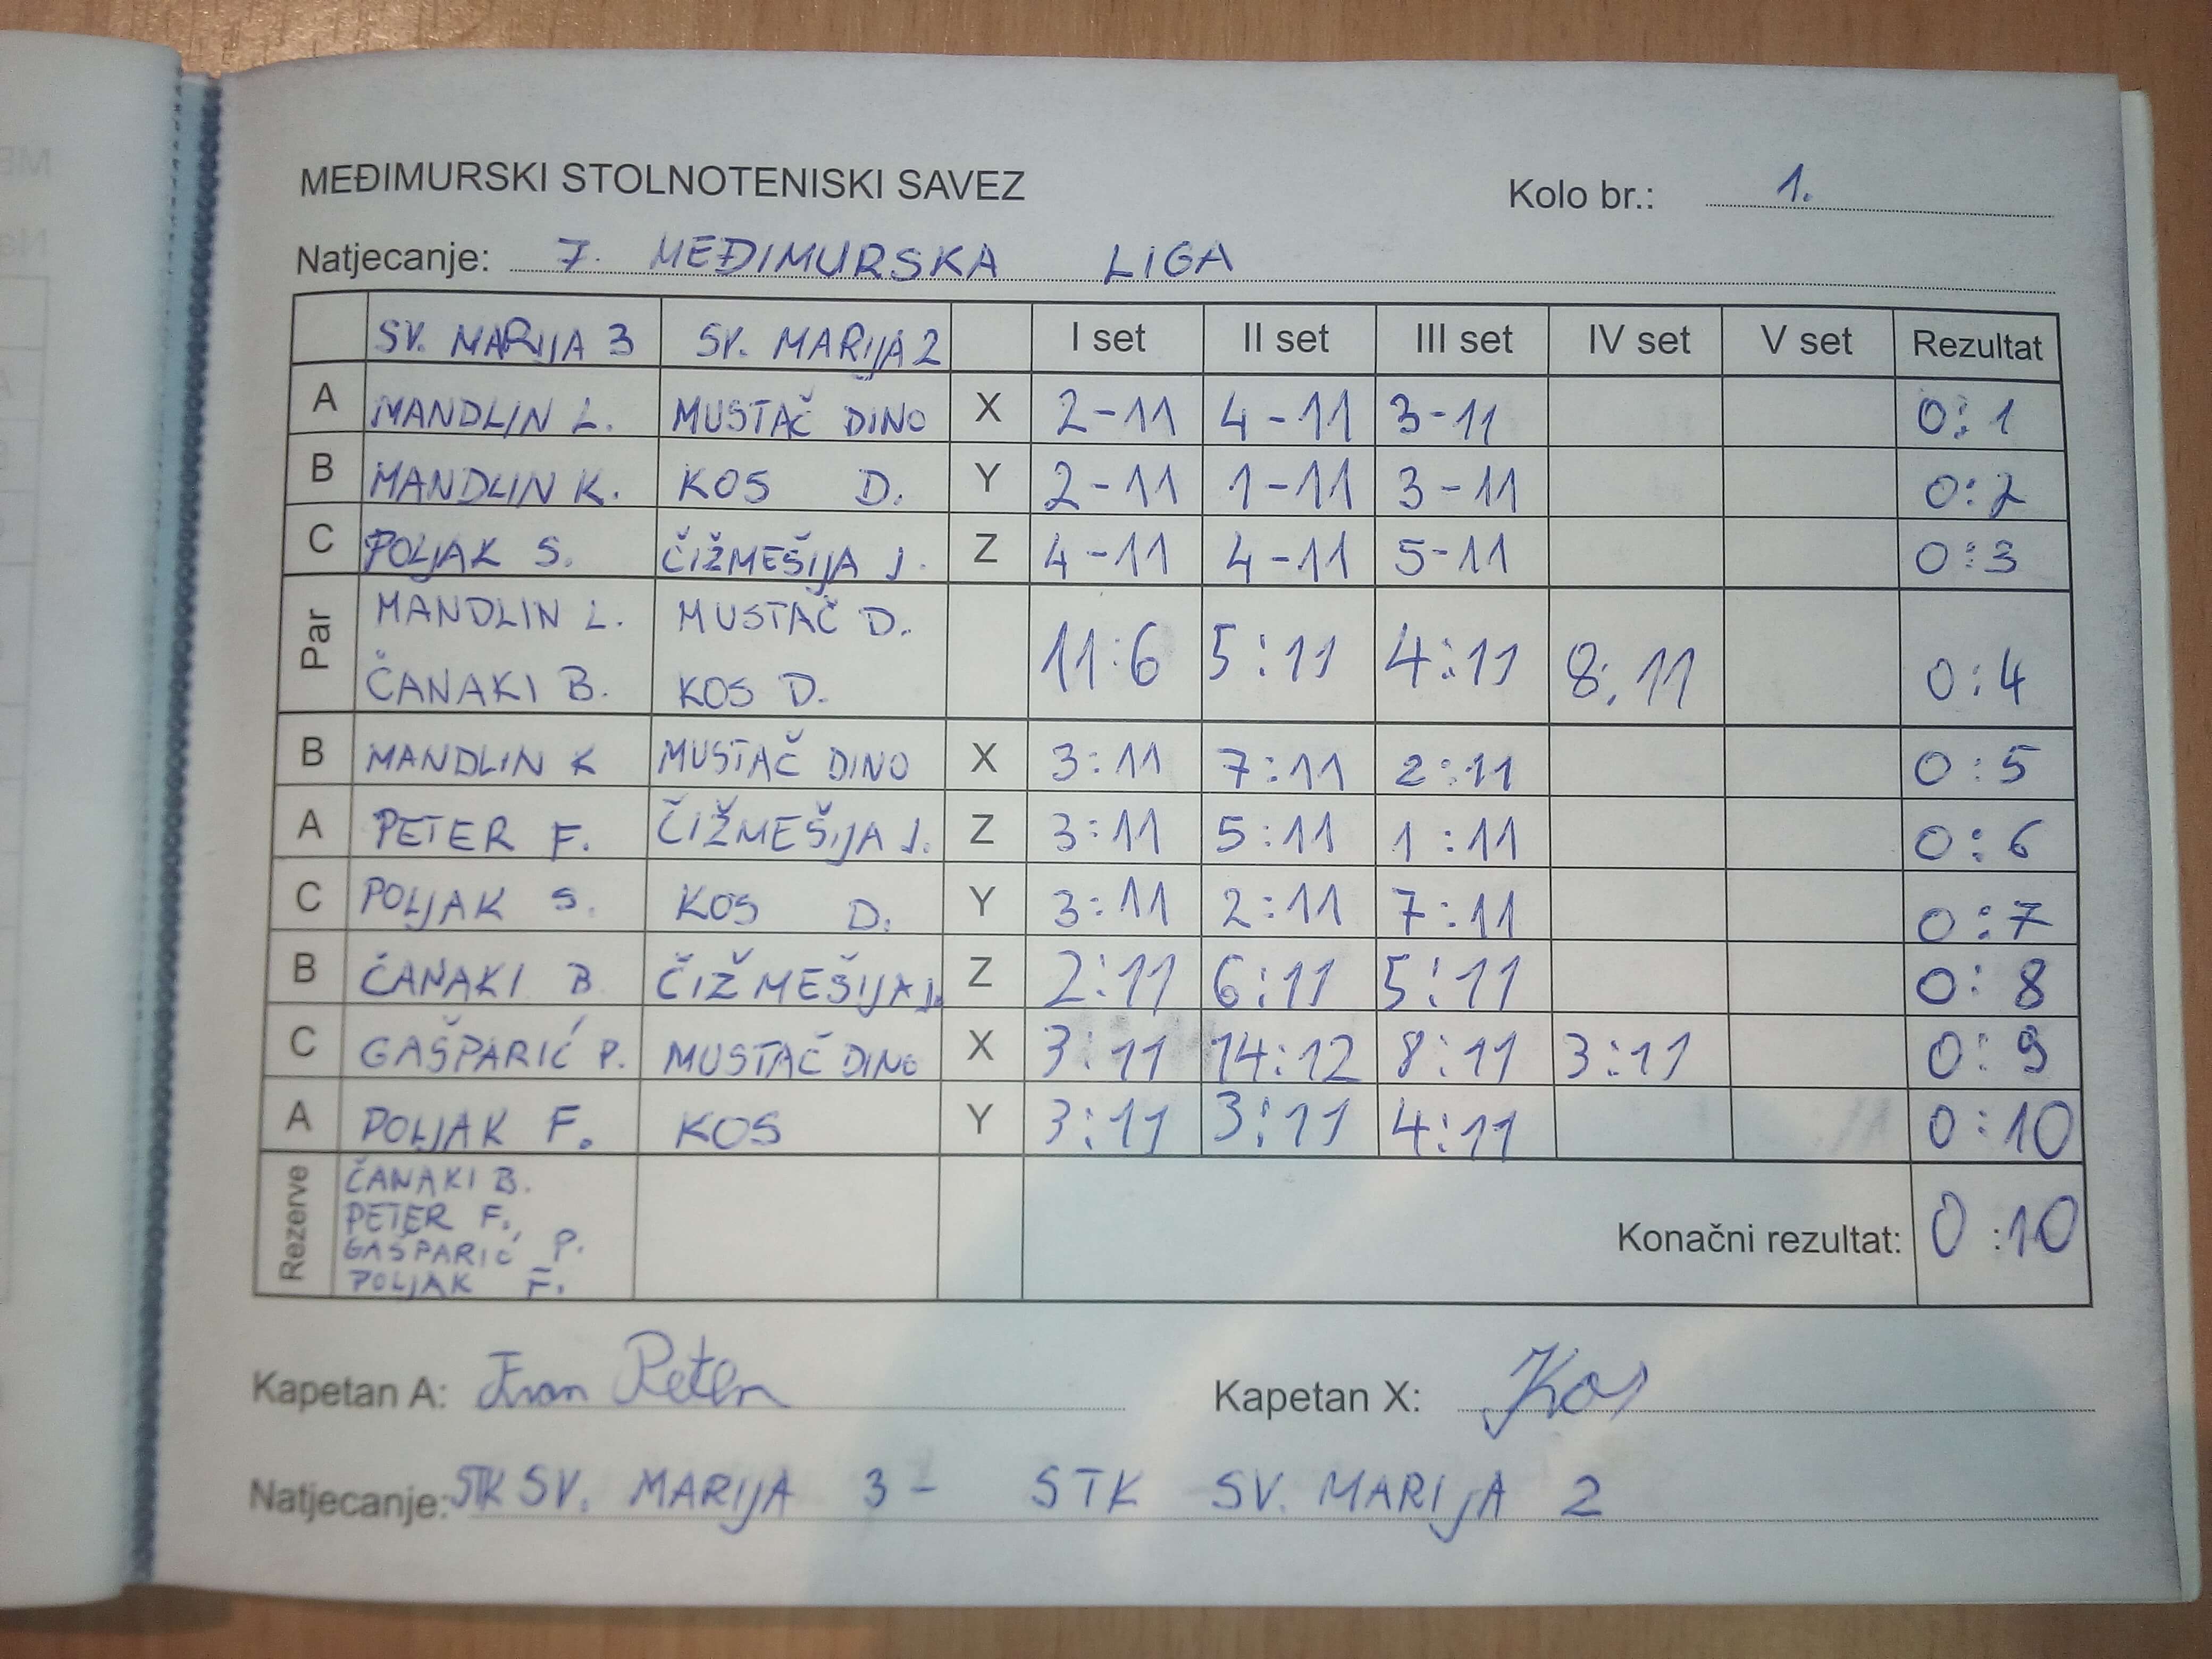 MEĐIMURSKI STOLNOTENISKI SAVEZ Kolo br.: 1.
Natjecanje: 7. MEĐIMURSKA LIGA
SV. MARIJA 3 SV. MARIJA 2 I set II set III set IV set V set Rezultat
A MANDLIN L. MUSTAČ DINO X 2-11 4-11 3-11 0:1
B MANDLIN K. KOS D. Y 2-11 1-11 3-11 0:2
C POLJAK S. ČIŽMEŠIJA J. Z 4-11 4-11 5-11 0:3
Par MANDLIN L. MUSTAČ D. 11:6 5:11 4:11 8:11 0:4
ČANAKI B. KOS D.
B MANDLIN K MUSTAČ DINO X 3:11 7:11 2:11 0:5
A PETER F. ČIŽMEŠIJA J. Z 3:11 5:11 1:11 0:6
C POLJAK S. KOS D. Y 3:11 2:11 7:11 0:7
B ČANAKI B ČIŽMEŠIJA J. Z 2:11 6:11 5:11 0:8
C GAŠPARIĆ P. MUSTAČ DINO X 3:11 14:12 8:11 3:11 0:9
A POLJAK F. KOS Y 3:11 3:11 4:11 0:10
Rezerve ČANAKI B.
PETER F.,
GAŠPARIĆ P.
POLJAK F.
Konačni rezultat: 0:10
Kapetan A: Fran Peter Kapetan X: Kos
Natjecanje: STK SV. MARIJA 3 - STK SV. MARIJA 2